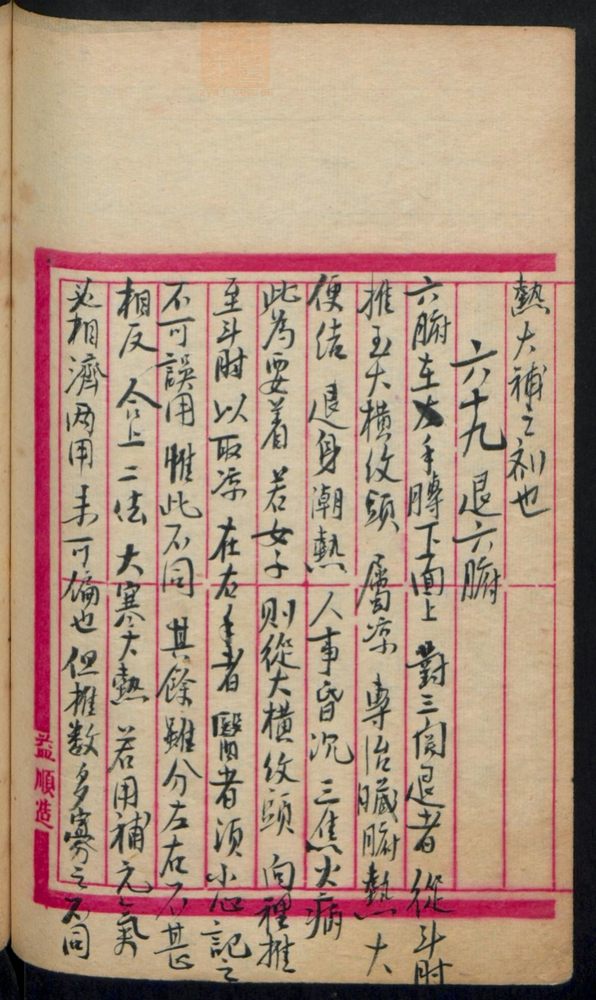 熱大補之剂也
六十九 退六腑
六腑在左手膊下面上 對三関退者 從斗肘
推至大横纹頭 屬凉 專治臓腑熱 大
便结 退身潮熱 人事昏沉 三焦火病
此為要着 若女子 則從大横纹頭 向裡推
至斗肘 以取凉 在右手者 醫者須小心記之
不可誤用 惟此不同 其餘雖分左右不甚
相反 合上二法 大寒大熱 若用補元氣
必相濟两用 未可偏也 但推数多寡之不同
益順造